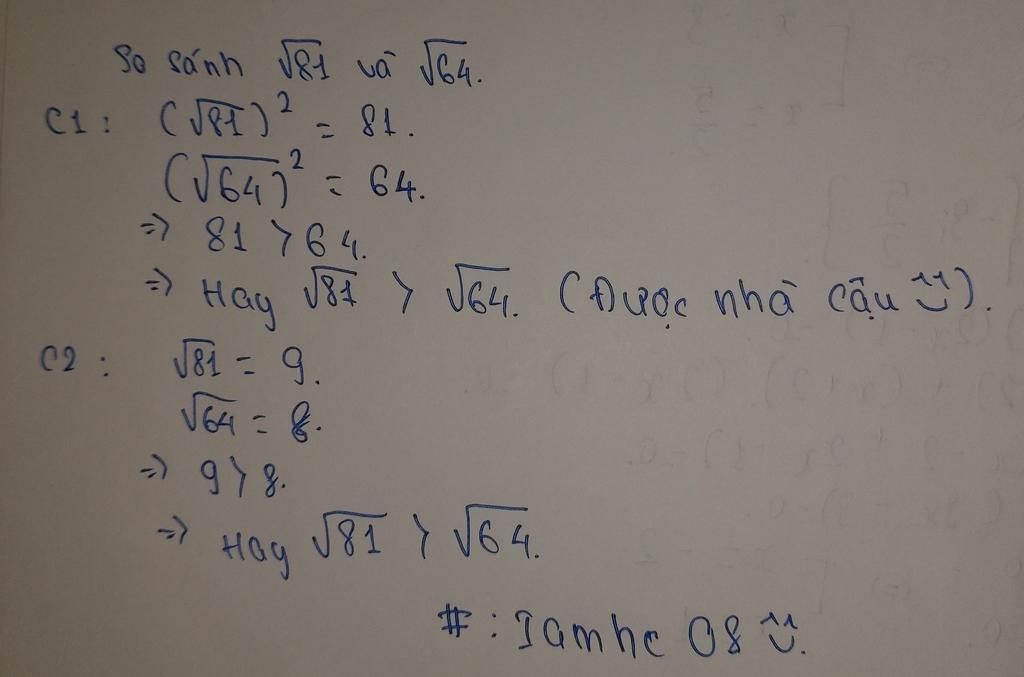 So sánh √81 và √64.
C1: (√81)² = 81.
(√64)² = 64.
=> 81 > 64.
=> Hay √81 > √64. (Được nhà cậu ^^).
C2: √81 = 9.
√64 = 8.
=> 9 > 8.
=> Hay √81 > √64.
#: Iamhc 08 ^^.